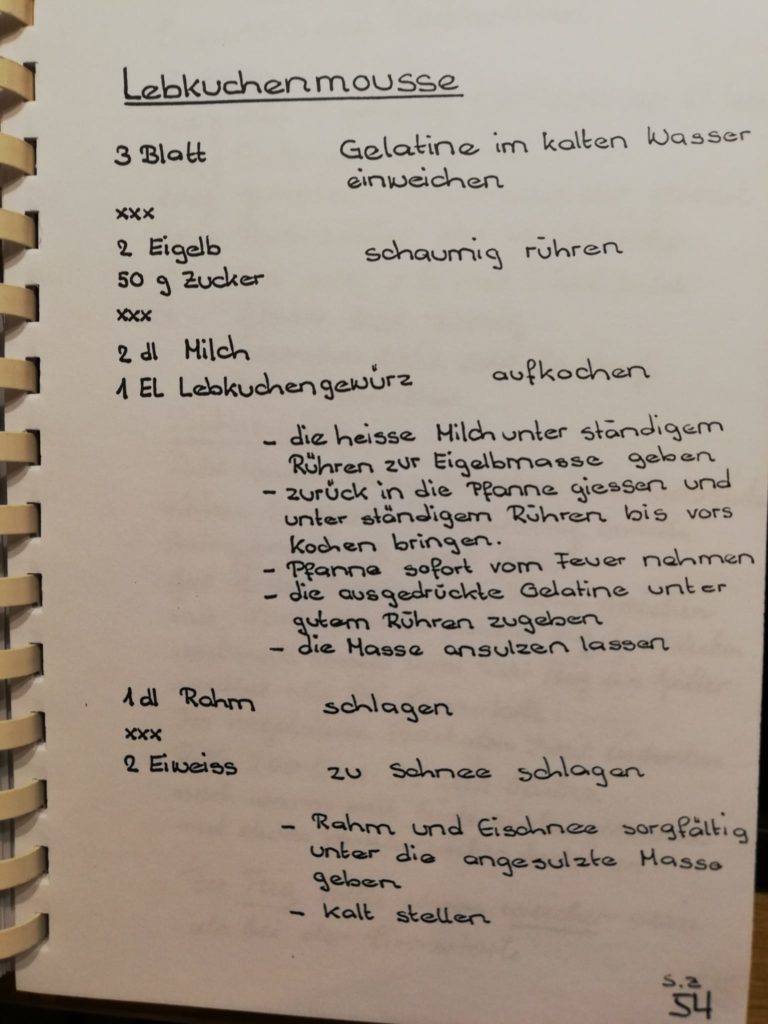 Lebkuchenmousse
3 Blatt Gelatine im kalten Wasser
einweichen
xxx
2 Eigelb schaumig rühren
50 g Zucker
xxx
2 dl Milch
1 EL Lebkuchengewürz aufkochen
- die heisse Milch unter ständigem
Rühren zur Eigelbmasse geben
- zurück in die Pfanne giessen und
unter ständigem Rühren bis vors
Kochen bringen.
- Pfanne sofort vom Feuer nehmen
- die ausgedrückte Gelatine unter
gutem Rühren zugeben
- die Masse ansulzen lassen
1 dl Rahm schlagen
xxx
2 Eiweiss zu Schnee schlagen
- Rahm und Eischnee sorgfältig
unter die angesulzte Masse
geben
- kalt stellen
S.2
54